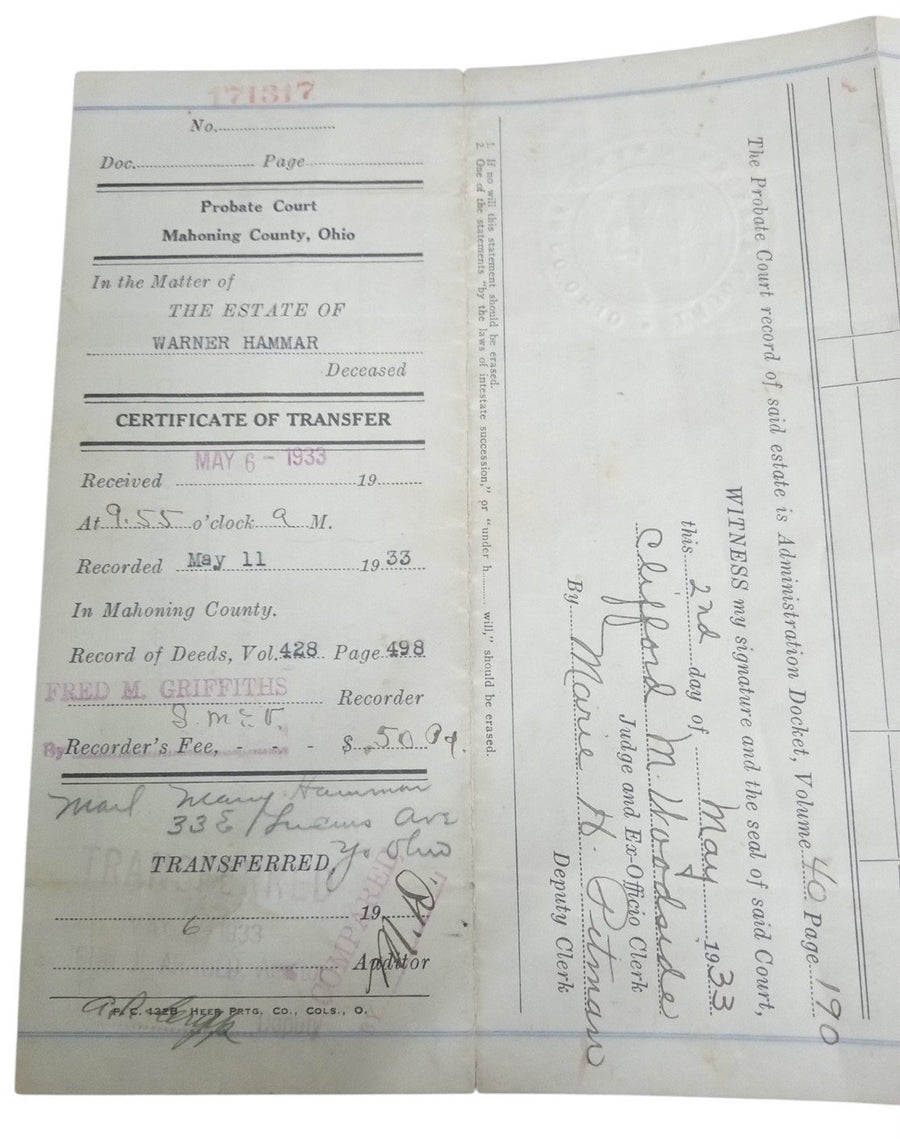 171317
No.
Doc. Page
Probate Court
Mahoning County, Ohio
In the Matter of
THE ESTATE OF
WARNER HAMMAR
Deceased
CERTIFICATE OF TRANSFER
MAY 6 - 1933
Received 19
At 9:55 o'clock a M.
Recorded May 11 1933
In Mahoning County.
Record of Deeds, Vol. 428 Page 498
FRED M. GRIFFITHS Recorder
By
Recorder's Fee, - - - $ .50 Pd.
Mail Mary Hammar
33 E Ave
Yo Ohio
TRANSFERRED,
COMPARED
6 19
1933
Auditor
P. C. 132B HEER PRTG. CO., COLS., O.
Deputy
1. If no will this statement should be erased.
2. One of the statements "by the laws of intestate succession," or "under h will," should be erased.
The Probate Court record of said estate is Administration Docket, Volume 40 Page 190
WITNESS my signature and the seal of said Court,
this 2nd day of May 1933
Clifford M. Woodside
Judge and Ex-Officio Clerk
By Marie H. Pitman
Deputy Clerk